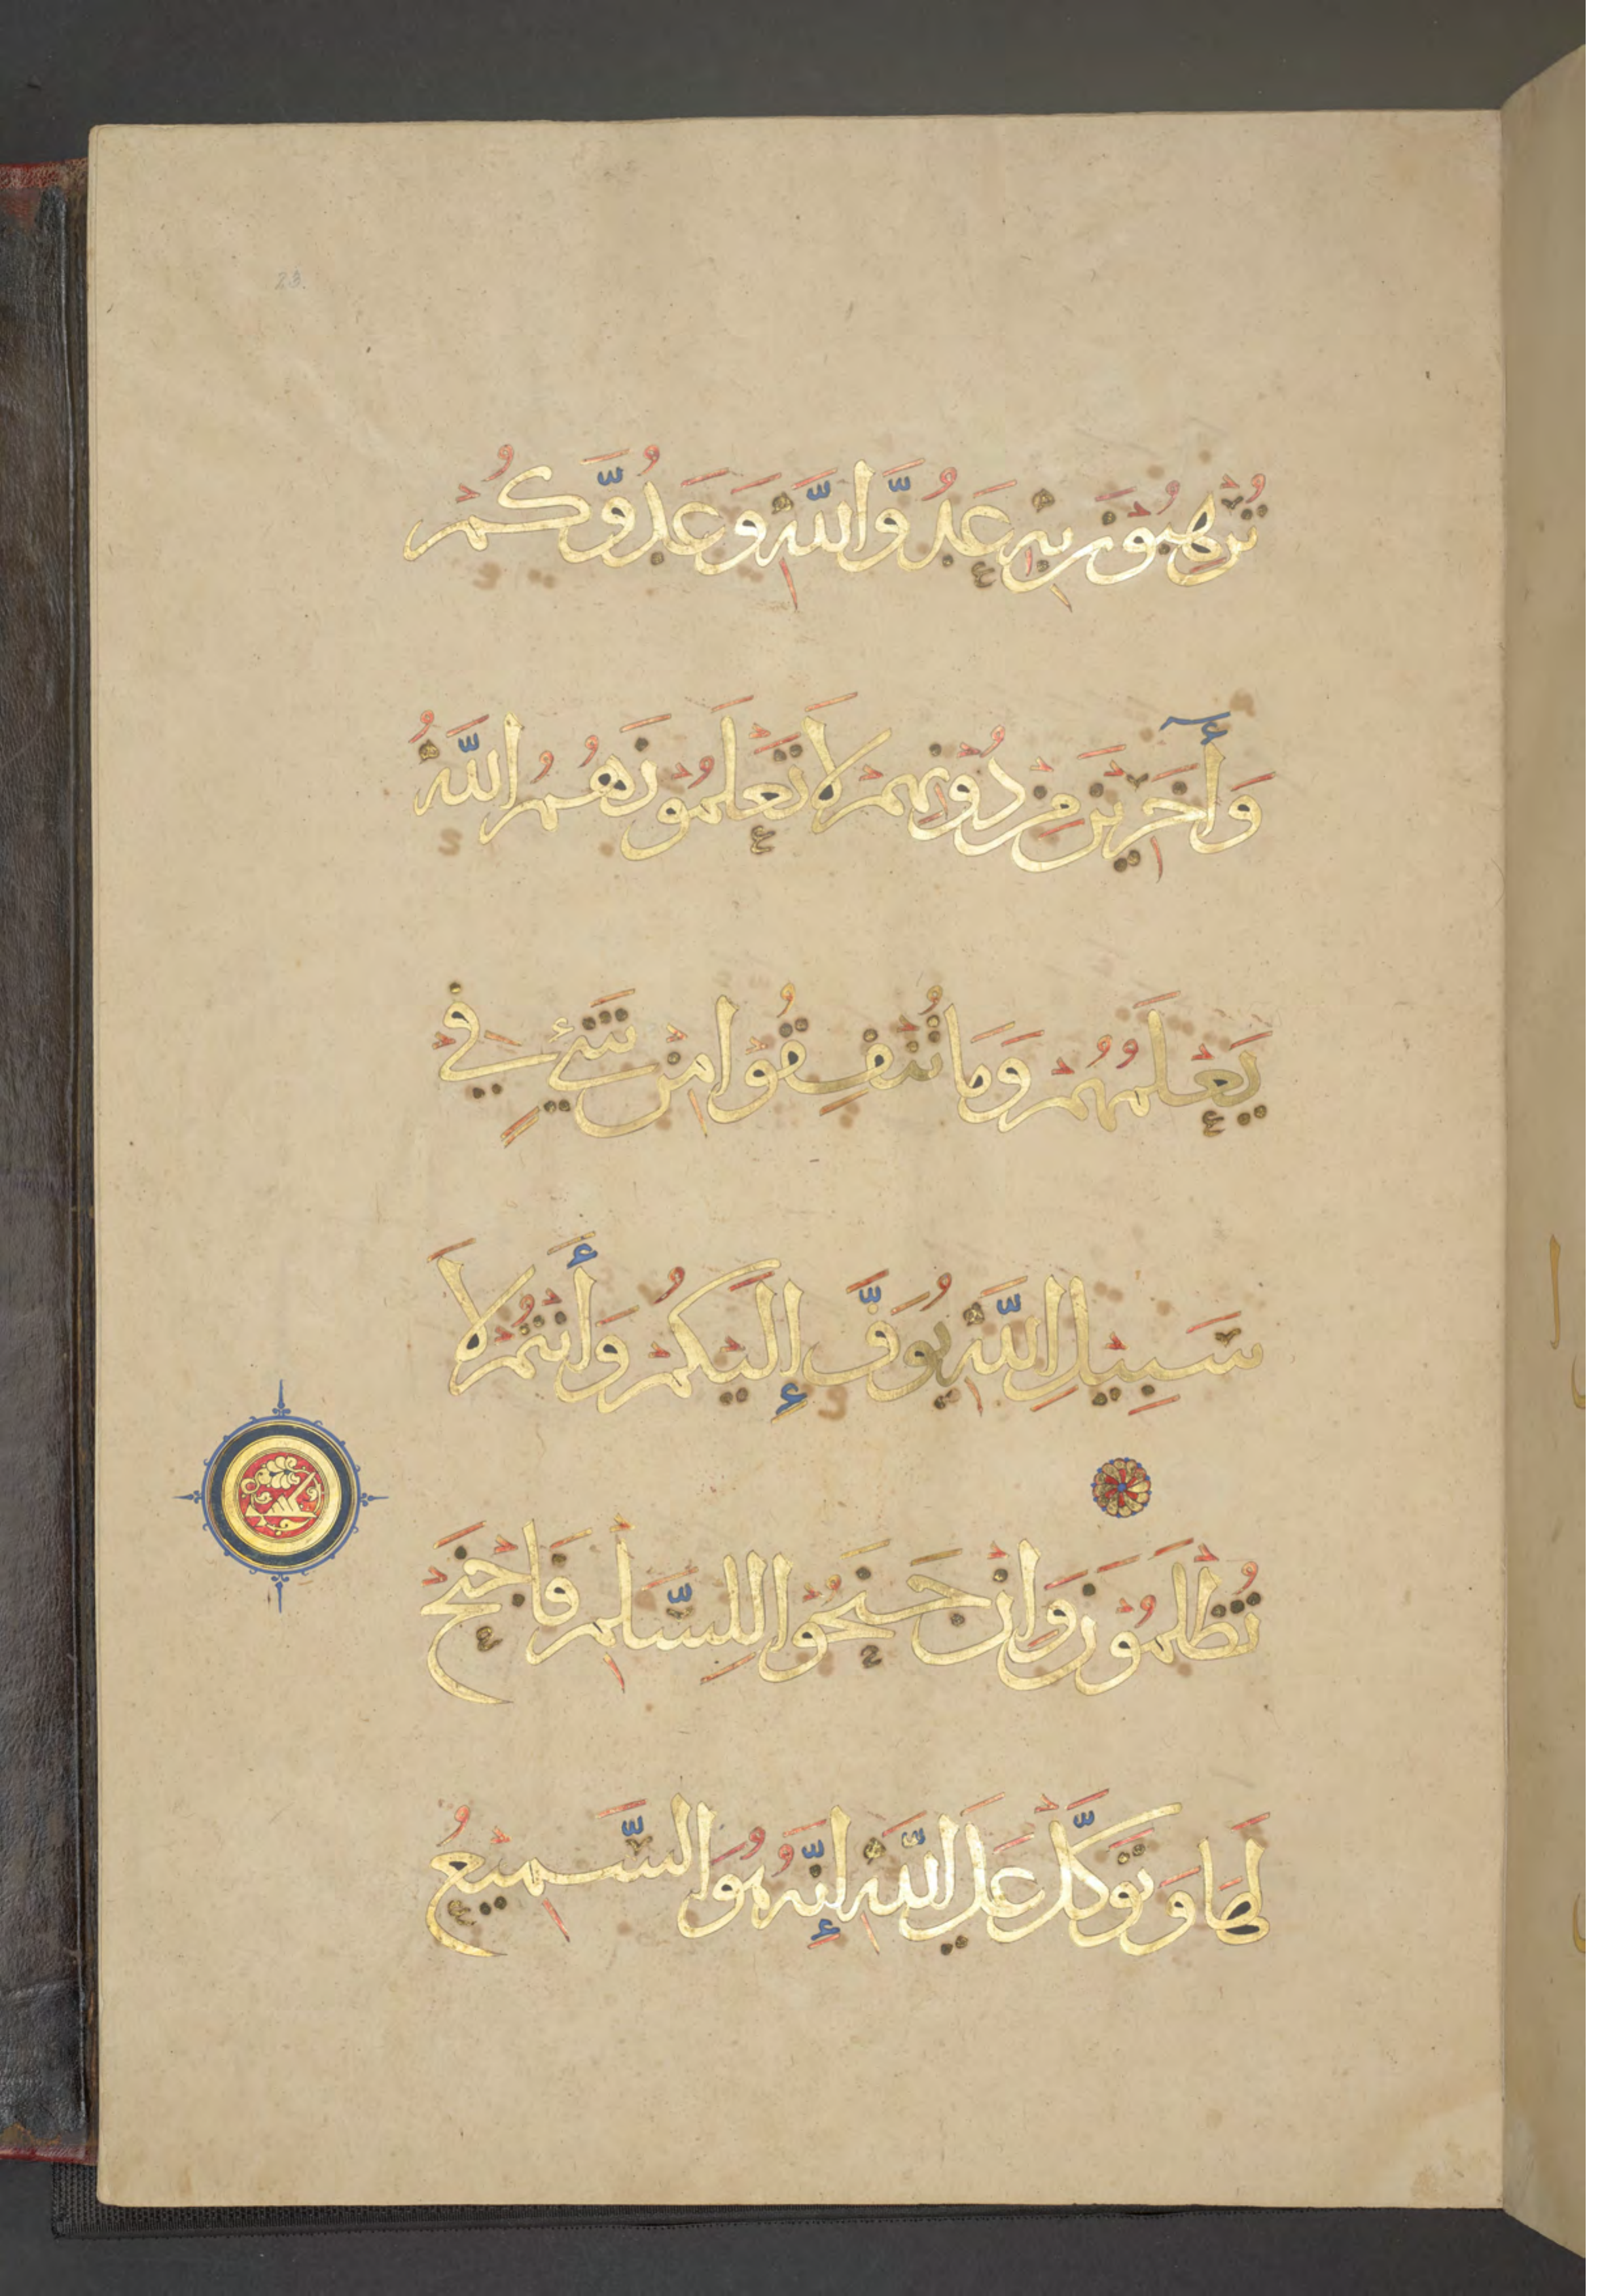 23.
تُرْهِبُوْنَ بِهِ عَدُوَّ اللَّهِ وَعَدُوَّكُمْ
وَأَٓخَرِيْنَ مِنْ دُوْنِهِمْ لَا تَعْلَمُوْنَهُمُ اللَّهُ
يَعْلَمُهُمْ وَمَا تُنْفِقُوْا مِنْ شَيْءٍ فِيْ
سَبِيْلِ اللَّهِ يُوَفَّ إِلَيْكُمْ وَأَنْتُمْ لَا
تُظْلَمُوْنَ وَإِنْ جَنَحُوْا لِلسَّلْمِ فَاجْنَحْ
لَهَا وَتَوَكَّلْ عَلَي اللَّهِ إِنَّهُ هُوَ السَّمِيْعُ